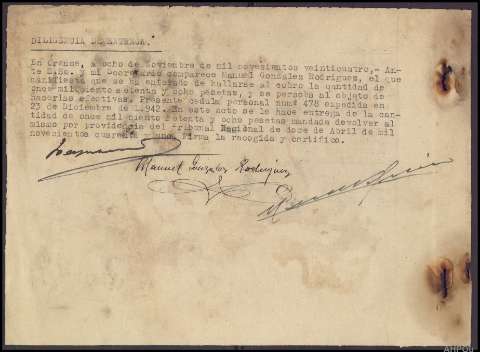 DILIGENCIA DE ENTREGA.
En Orense, a ocho de Noviembre de mil novecientos veinticuatro,- An-
te S.Sª. y mi Secretario comparece Manuel Gonzalez Rodriguez, el que
manifiesta que se ha enterado de hallarse al cobro la cantidad de
once mil ciento setenta y ocho pesetas, y se persona al objeto de
hacerlas efectivas. Presenta cedula personal num? 478 expedida en
23 de Diciembre de 1.942. En este acto se le hace entrega de la can-
tidad de once mil ciento setenta y ocho pesetas mandada devolver al
mismo por providencia del Tribunal Regional de doce de Abril de mil
novecientos cuarenta y uno. Firma la recogida y certifico.
Manuel Gonzalez Rodriguez
AHPOu